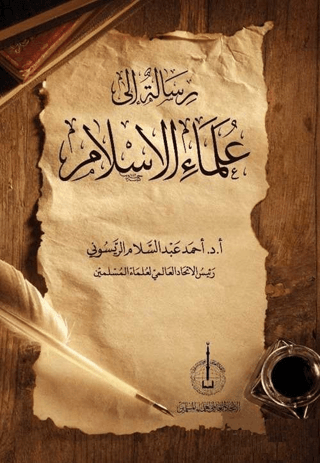 رسالة إلى
علماء الإسلام
أ.د. أحمد عبد السلام الريسوني
رئيس الاتحاد العالمي لعلماء المسلمين
الاتحاد العالمي لعلماء المسلمين